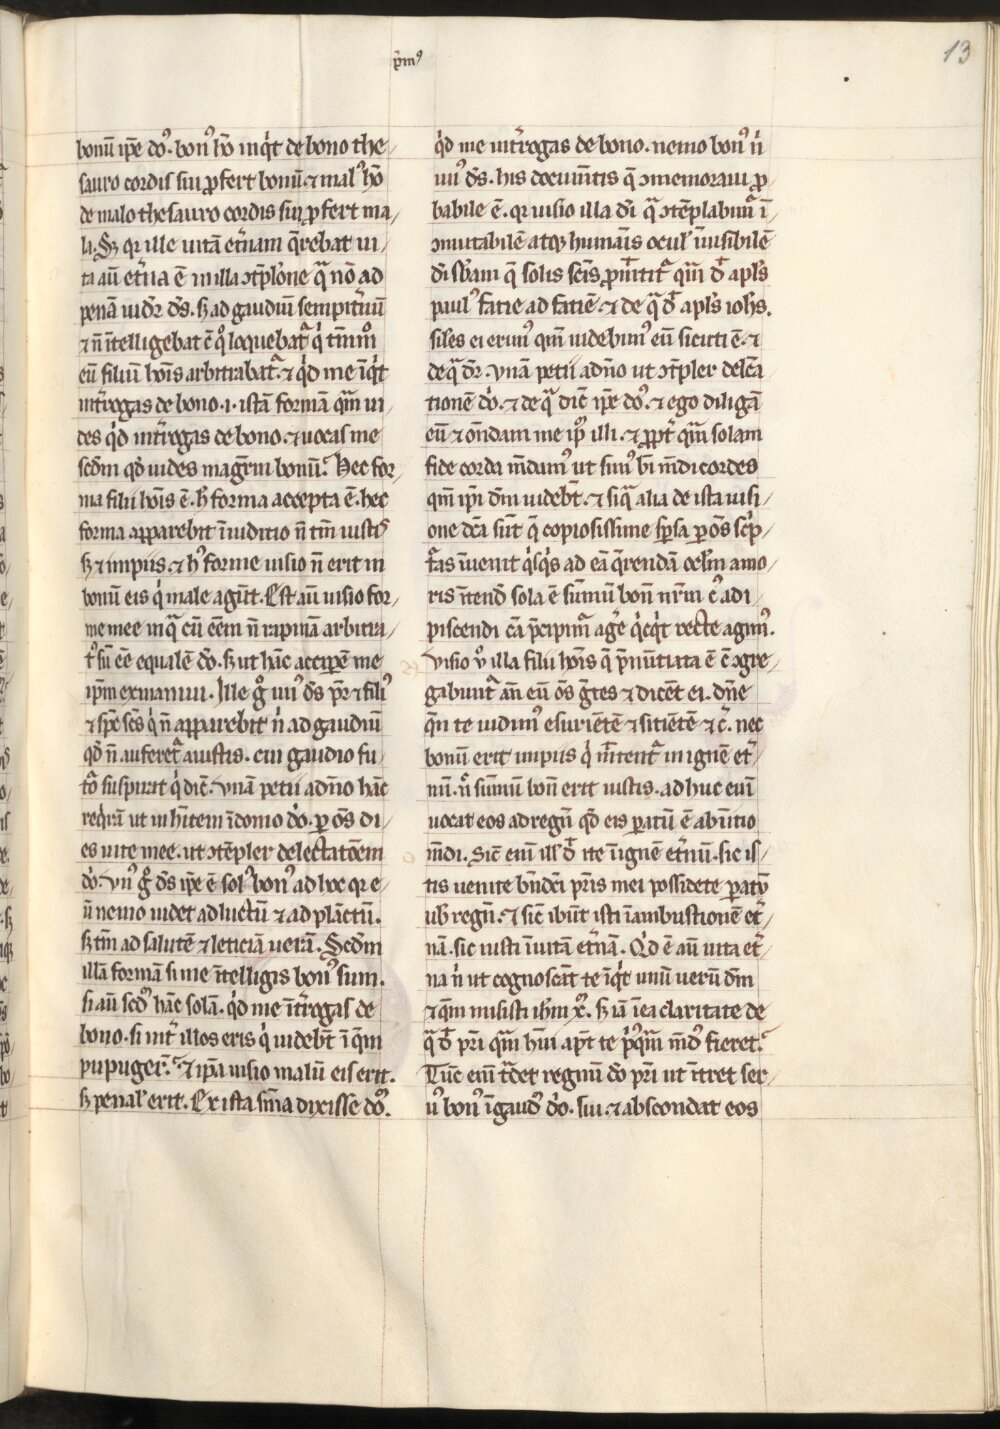 p̄mꝰ
13
bonū ip̄e dō. bonꝰ hō inq̇t de bono the/
sauro cordis sui ꝓfert bonū ⁊ malꝰ hō
de malo thesauro cordis sui ꝓfert ma/
la. Sꝫ qr ille uitā et̄nam q̄rebat ui/
ta aū et̄na ē in illa ↄtēplōne qᷓ nō ad
penā uidr̄ ds̄. sꝫ ad gaudiū sempit̄nū
⁊ n̄ ītelligebat cū qͦ loquebat᷑ q̇ tm̄mͦ
eū filiū hoīs arbitrabat᷑ ⁊ q̇d me īq̇t
int̄rogas de bono .i. istā formā qᷓm ui/
des q̇d int̄rogas de bono ⁊ uocas me
scd̄m qd̄ uides magr̄m bonū. Hec for/
ma filii hoīs ē. h̄ forma accepta ē. hec
forma apparebit ī iuditio n̄ tm̄ iustis
sꝫ ⁊ impiis. ⁊ hꝰ forme uisio n̄ erit in
bonū eis q̇ male agūt. Est aū uisio for/
me mee in qᷓ cū eēm n̄ rapinā arbitra/
tꝰ sū eē equalē dō. sꝫ ut hāc acciꝑē me
ip̄m exinaniui. Ille gͦ unꝰ ds̄ pr̄ ⁊ filiꝰ
⁊ sp̄c sc̄s q̇ n̄ apparebit n̄ ad gaudiū
qd̄ n̄ auferet᷑ a iustis. cui gaudio fu/
tō suspirat q̇ dic̄. Vnā petii a dn̄o hāc
req̇rā ut inh̄item ī domo dō. ꝑ os̄ di/
es uite mee. ut ↄtēpler delectatōem
dō. Vnꝰ gͦ ds̄ ip̄e ē solꝰ bonꝰ ad hoc qr e/
ū nemo uidet ad luctū ⁊ ad plāctū.
sꝫ tm̄ ad salutē ⁊ leticiā uerā. Scd̄m
illā formā si me ītelligis bonꝰ sum.
si aū scd̄ hāc solā. q̇d me īt̄rogas de
bono. si int̄ illos eris q̇ uidebūt ī qm̄
pupuger̄t. ⁊ ip̄a uisio malū eis erit.
sꝫ penalꝰ erit. Ex ista sn̄ia dixisse dō.
q̇d me int̄rogas de bono. nemo bonꝰ n̄
unꝰ ds̄. his docum̄tis q̄ ↄmemoraui ꝓ/
babile ē. qr uisio illa dī qᷓ ↄtēplabim᷑ ī/
ↄmutabilē atqꝫ humaīs oculꝰ īuisibilē
dī sb̄am q̄ solis sc̄is ꝓmittit᷑ qᷓm d̄t apl̄s
paulꝰ fatie ad fatiē. ⁊ de qᷓ d̄t apl̄s ioh̄s.
siles ei erimꝰ qm̄ uidebimꝰ eū sicuti ē. ⁊
de qᷓ dr̄. vnā petii a dn̄o ut ↄtēpler delc̄a/
tionē dō. ⁊ de qᷓ dic̄ ip̄e dō. ⁊ ego diligā
eū ⁊ on̄dam me ip̄m illi. ⁊ ꝓpt̄ qᷓm solam
fide corda mūdamꝰ ut simꝰ bī mūdi cordes
qm̄ ip̄i dm̄ uidebūt. ⁊ siqᷓ alia de ista uisi/
one dc̄a sūt q̄ copiosissime sꝑsa ꝑ os̄ sc̄p/
t᷑as īuenit q̇sq̇s ad eā q̄rendā ocl̄m amo/
ris ītend̄. sola ē sum̄ū bon̄ nr̄m cꝰ adi/
piscendi cā p̄cipim᷑ ag̃e q̇cq̇t recte agimꝰ.
Visio ꝟ illa filii hoīs q̄ p̄nūtiata ē c̄ ↄgre/
gabunt᷑ an̄ eū os̄ gētes ⁊ dicēt ei. dn̄e
qn̄ te uidimꝰ esuriētē ⁊ sitiētē ⁊ c̄. nec
bonū erit impiis q̇ mittent᷑ in ignē et̄/
nū. n̄ sum̄ū bon̄ erit iustis. adhuc enī
uocat eos ad regnū qd̄ eis ꝑatū ē ab initio
mūdi. Sic̄ enī ill̄ d̄t ite ī ignē et̄nū. sic is/
tis uenite bn̄dc̄i pr̄is mei possidete ꝑatū
ub̄ regnū. ⁊ sic̄ ibūt isti ī ambustionē et̄/
nā. sic iusti ī uitā et̄nā. Qͥd ē aū uita et̄/
na n̄ ut cognoscāt te īq̇t unū uerū dm̄
⁊ qm̄ misisti ih̄m x̄. sꝫ iā ī ea claritate de
qᷓ d̄t pr̄i qᷓm h̄ui apt̄ te p̓qᷓm mūd̄ fieret.
Tūc enī t᷑det regnū dō pr̄i ut īt̄ret ser/
uꝰ bonꝰ ī gaud̄ dō. sui. ⁊ abscondat eos